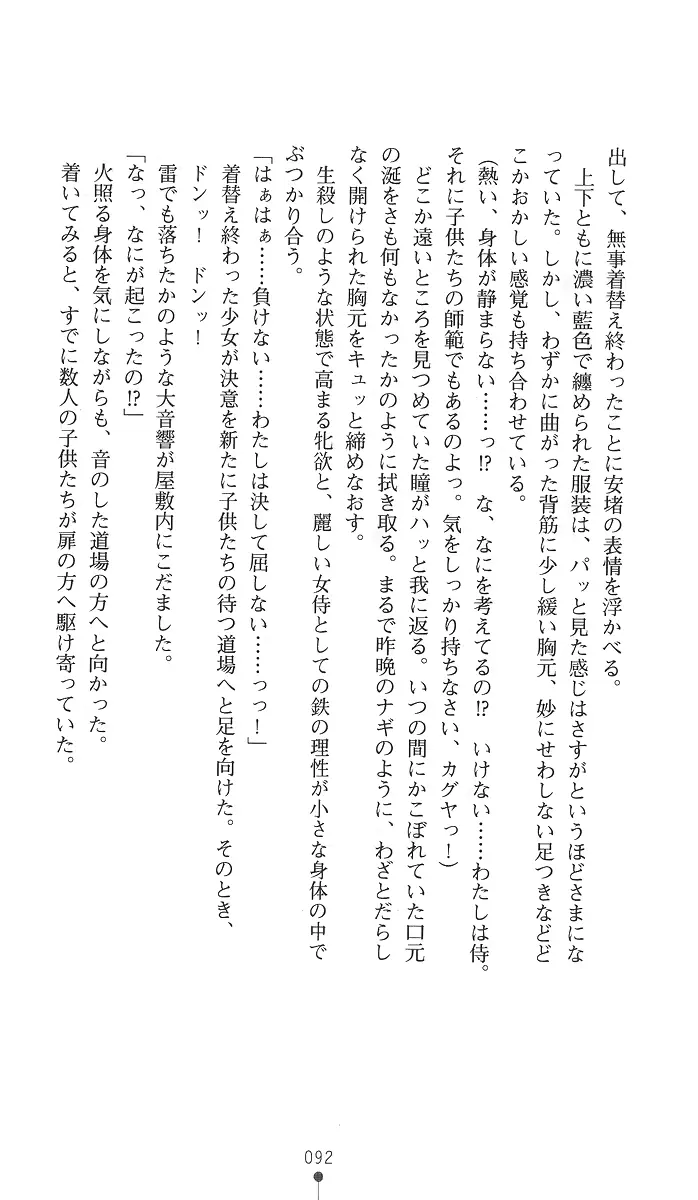 出して、無事着替え終わったことに安堵の表情を浮かべる。
　上下ともに濃い藍色で纏められた服装は、パッと見た感じはさすがというほどさまにな
っていた。しかし、わずかに曲がった背筋に少し緩い胸元、妙にせわしない足つきなどど
こかおかしい感覚も持ち合わせている。
（熱い、身体が静まらない……っ!?　な、なにを考えてるの!?　いけない……わたしは侍。
それに子供たちの師範でもあるのよっ。気をしっかり持ちなさい、カグヤっ！）
　どこか遠いところを見つめていた瞳がハッと我に返る。いつの間にかこぼれていた口元
の涎をさも何もなかったかのように拭き取る。まるで昨晩のナギのように、わざとだらし
なく開けられた胸元をキュッと締めなおす。
　生殺しのような状態で高まる牝欲と、麗しい女侍としての鉄の理性が小さな身体の中で
ぶつかり合う。
「はぁはぁ……負けない……わたしは決して屈しない……っっ！」
　着替え終わった少女が決意を新たに子供たちの待つ道場へと足を向けた。そのとき、
　ドンッ！　ドンッ！
　雷でも落ちたかのような大音響が屋敷内にこだました。
「なっ、なにが起こったの!?」
　火照る身体を気にしながらも、音のした道場の方へと向かった。
　着いてみると、すでに数人の子供たちが扉の方へ駆け寄っていた。
092